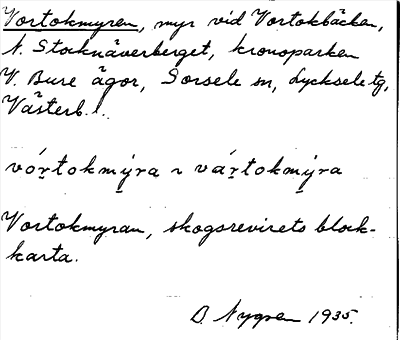 Vortokmyren, myr vid Vortokbäcken,
N. Stocknäverberget, kronoparken
V. Bure ägor, Sorsele sn, Lycksele tg,
Västerb. l.
vó̤r̤tokmy̤´ra ~ vár̤tokmy̤´ra
Vortokmyran, skogsrevirets block-
karta.
D. Nygren 1935.